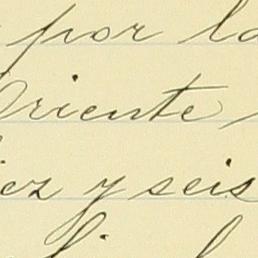 por la
Oriente
ez y seis